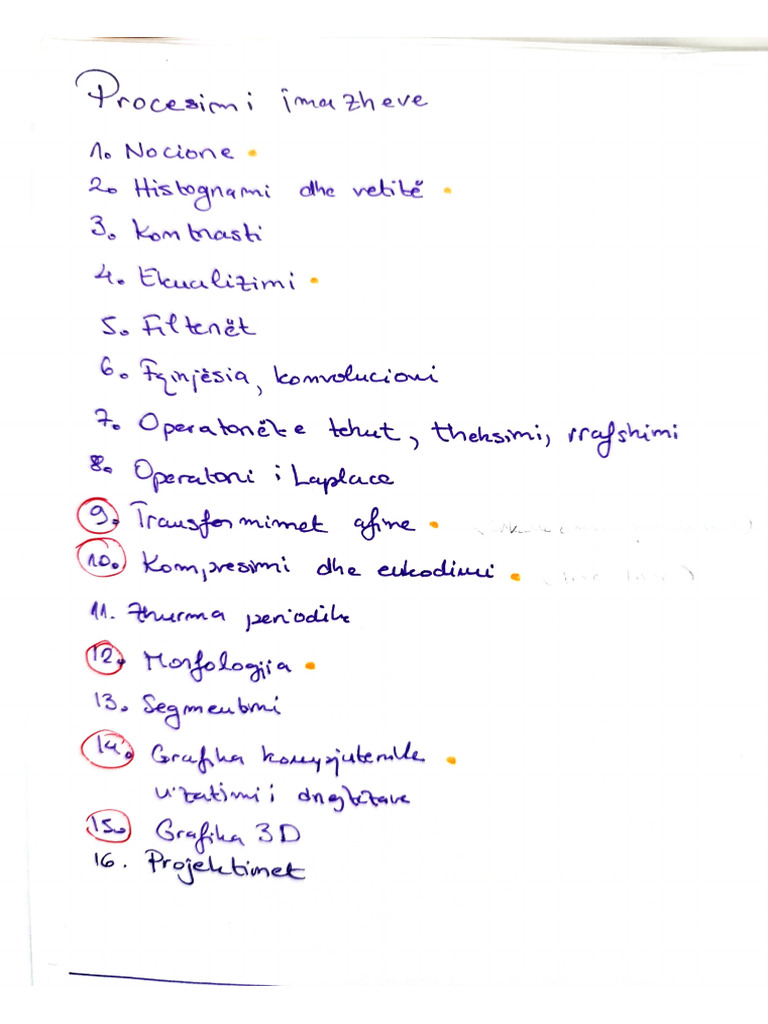 Procesimi imazheve
1. Nocione
2. Histogrami dhe vetitë
3. Kontrasti
4. Ekualizimi
5. Filterët
6. Fqinjësia, konvolucioni
7. Operatorët e tehut, theksimi, rrafshimi
8. Operatori i Laplace
9. Transformimet afine
10. Kompresimi dhe enkodimi
11. Zhurma periodike
12. Morfologjia
13. Segmentimi
14. Grafika kompjuterike
vizatimi i drejtëzave
15. Grafika 3D
16. Projektimet